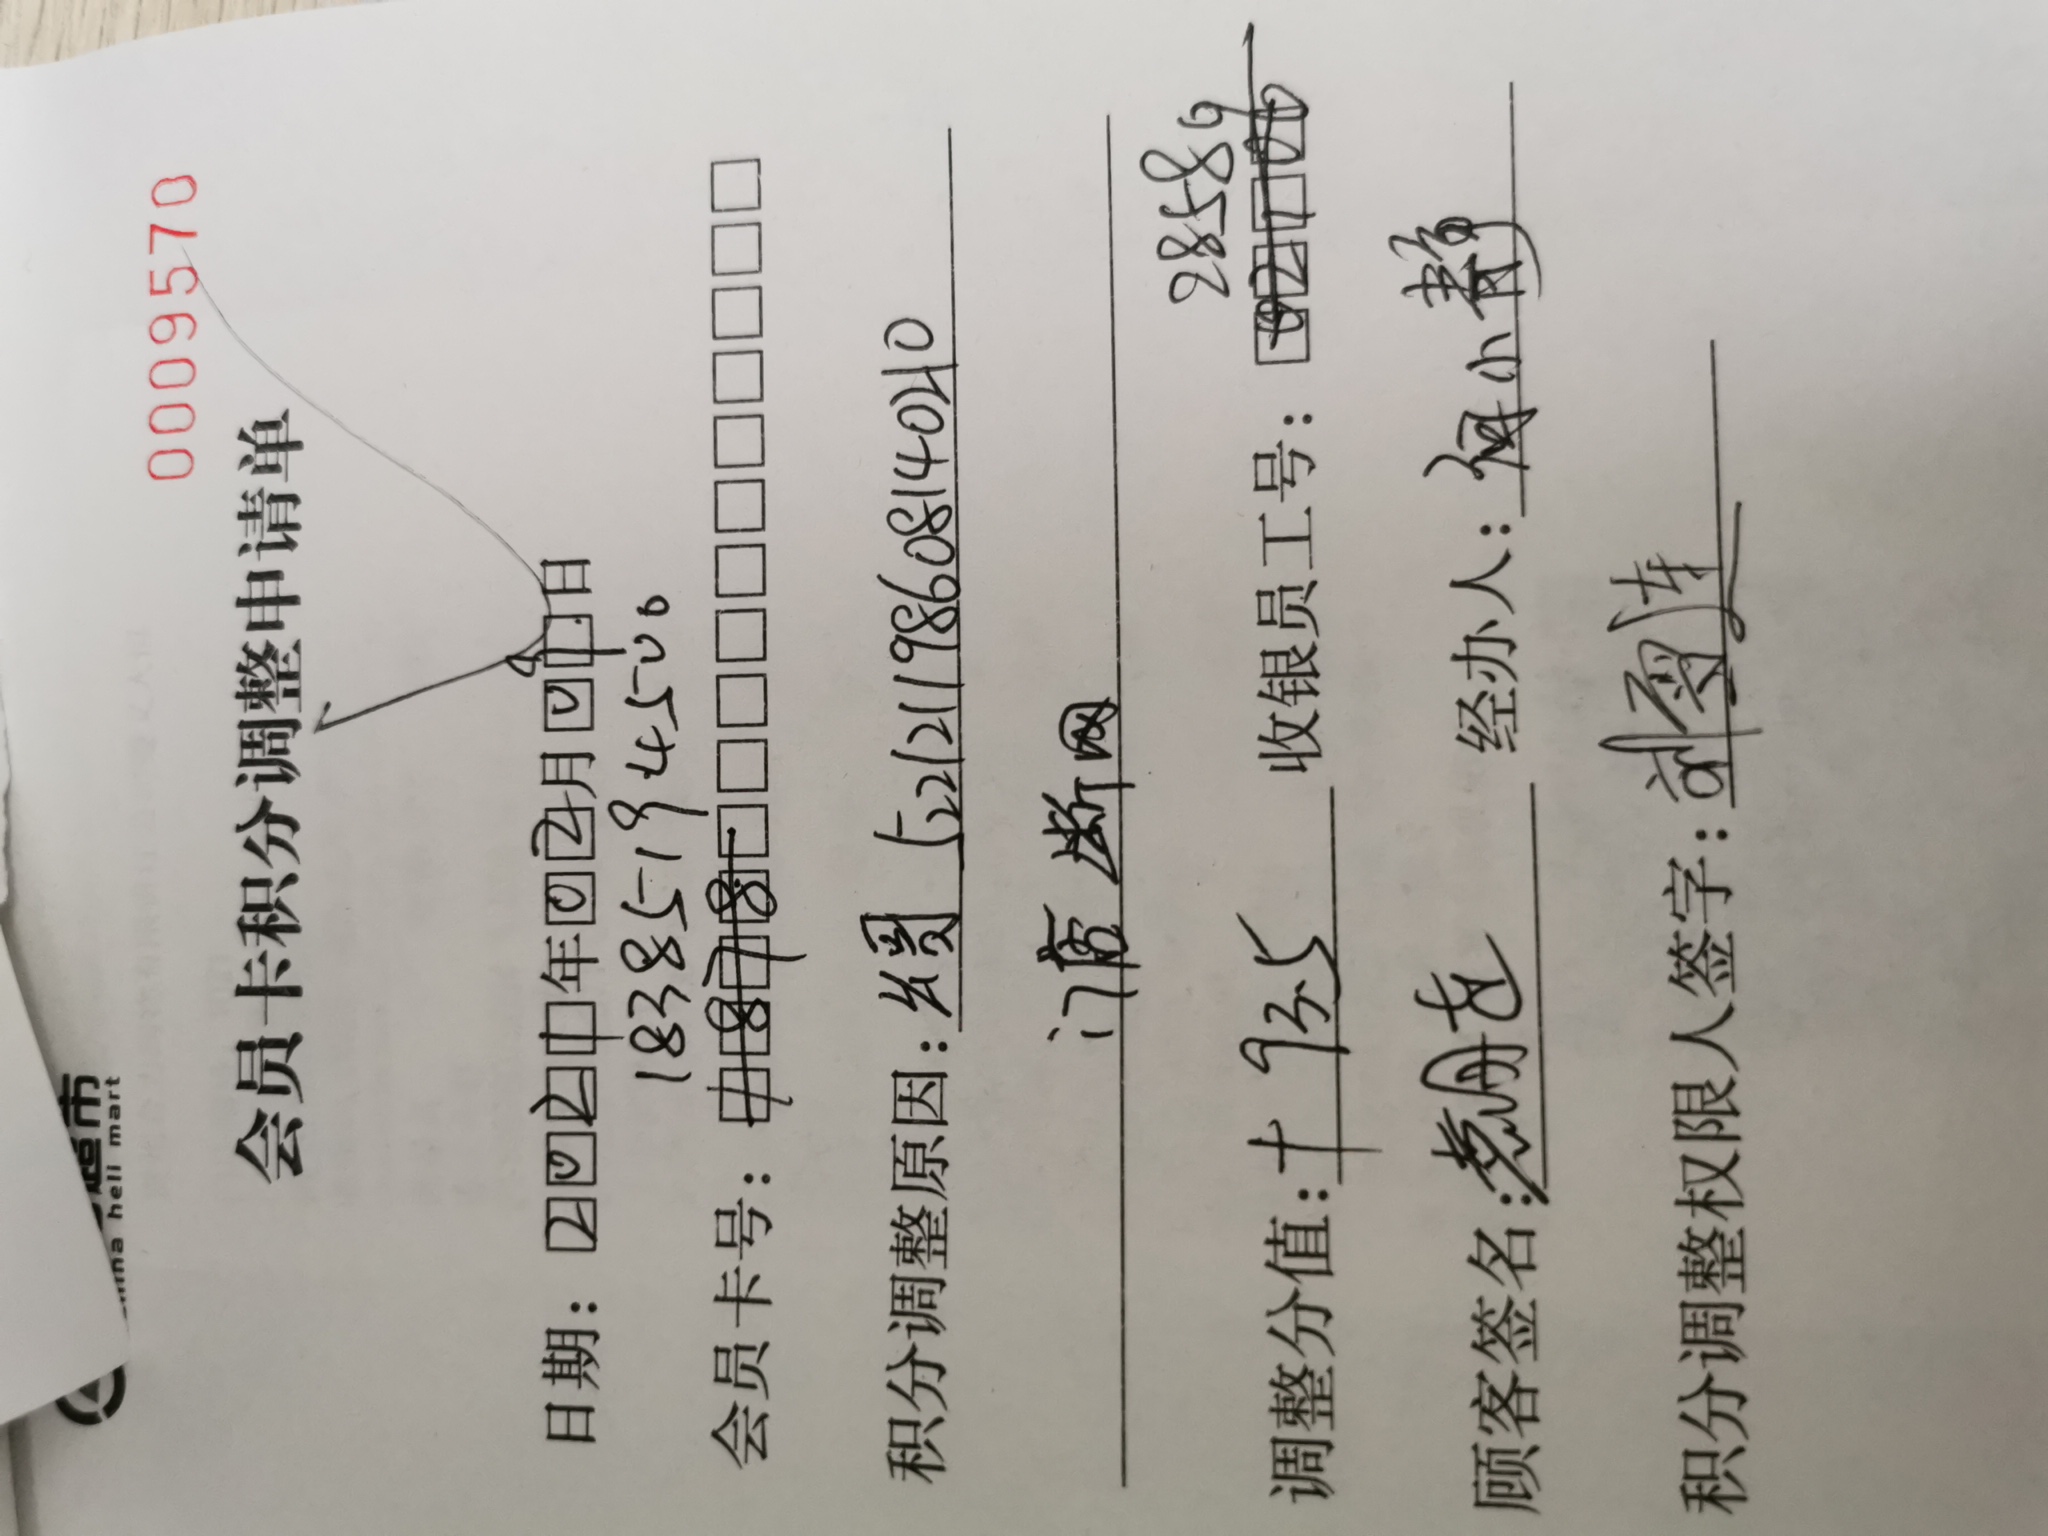 超市
china hell mart
0009570
会员卡积分调整申请单
日期：2021年02月01日
18385194500
会员卡号：
积分调整原因：绸 522121198608140210
门店断网
28589
调整分值：+935 收银员工号：
顾客签名： 经办人：何小静
积分调整权限人签字：